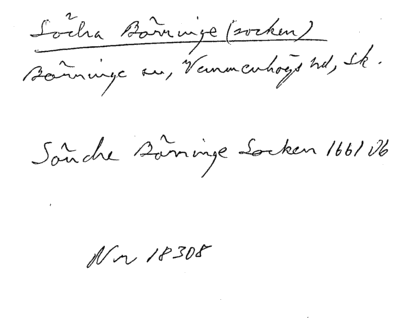 Södra Börringe (socken)
Börringe sn, Vemmenhögs hd, Sk.
Söndre Börringe Socken 1661 Jb
Nr 18308